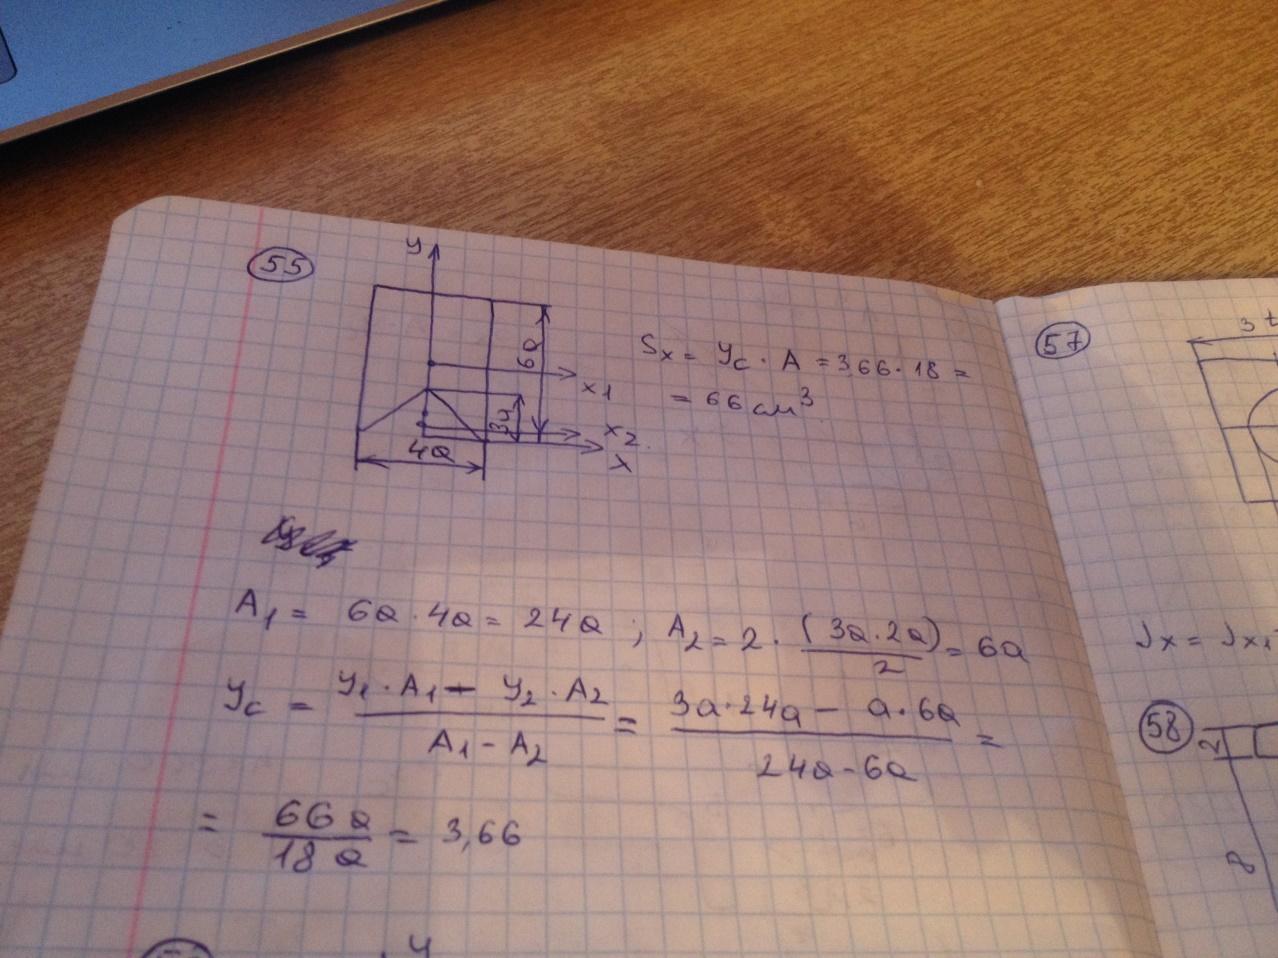 55
y
6a
x1
3a
x2
x
4a
Sx = yc · A = 3,66 · 18 =
= 66 см³
A1 = 6a · 4a = 24a ; A2 = 2 · (3a · 2a)/2 = 6a
yc = (y1 · A1 - y2 · A2)/(A1 - A2) = (3a · 24a - a · 6a)/(24a - 6a) =
= 66a/18a = 3,66
y
57
3
Jx = Jx1
58
2
8